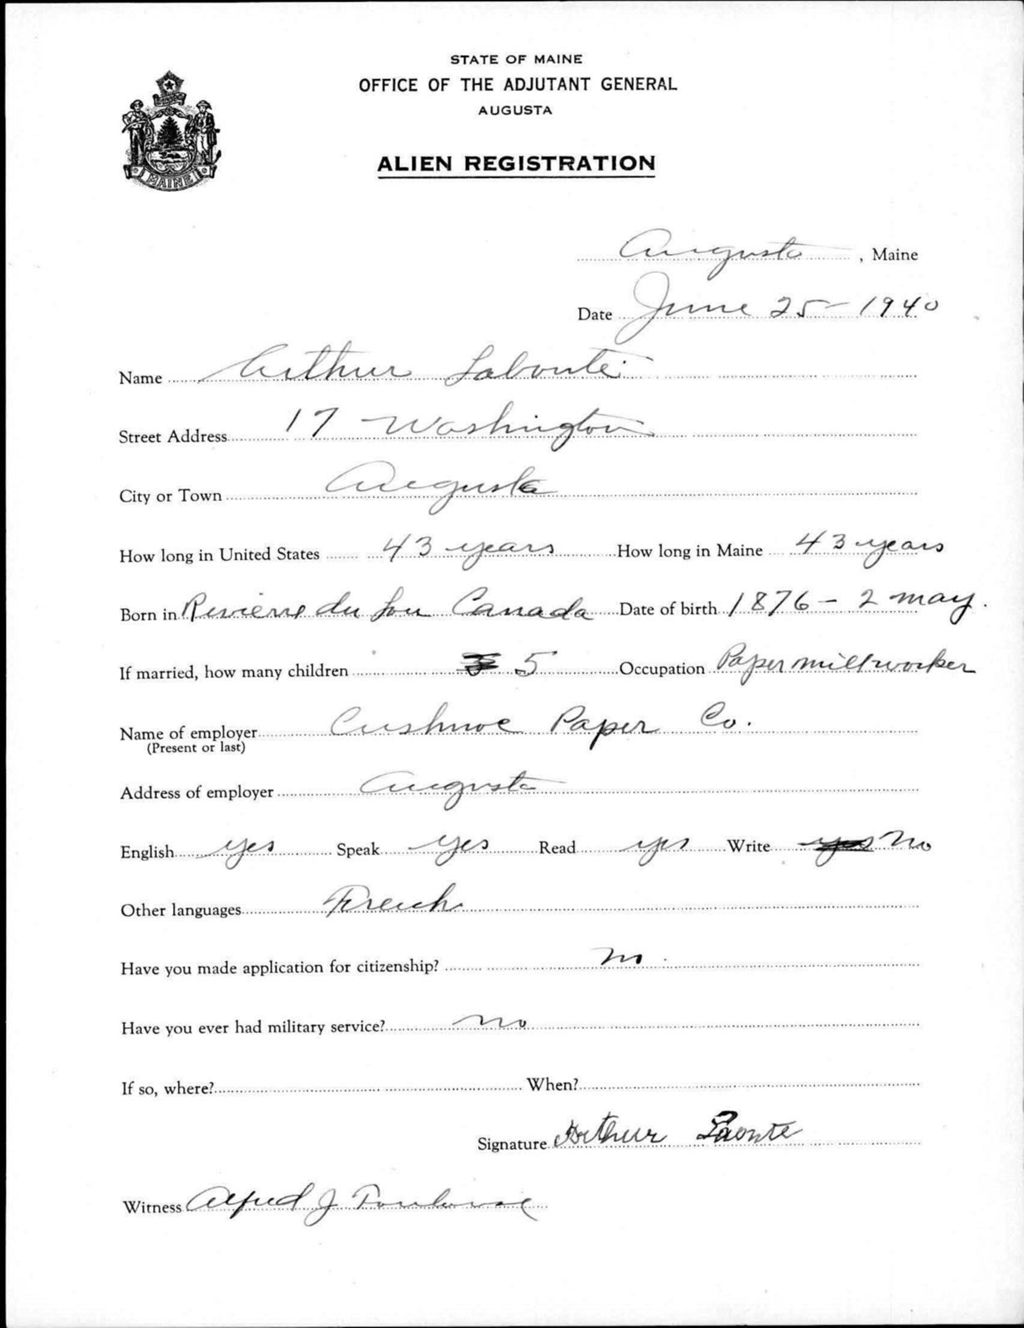 STATE OF MAINE
OFFICE OF THE ADJUTANT GENERAL
AUGUSTA
ALIEN REGISTRATION
MAINE
Augusta, Maine
Date June 25 - 1940
Name Arthur Labonte
Street Address 17 Washington
City or Town Augusta
How long in United States 43 years How long in Maine 43 years
Born in Reviere du Lou Canada Date of birth 1876 - 2 may.
If married, how many children 5 Occupation Paper mill worker
Name of employer Cushnoc Paper Co.
(Present or last)
Address of employer Augusta
English yes Speak yes Read yes Write yes no
Other languages French
Have you made application for citizenship? no.
Have you ever had military service? no
If so, where? When?
Signature Arthur Laonte
Witness Alfred J